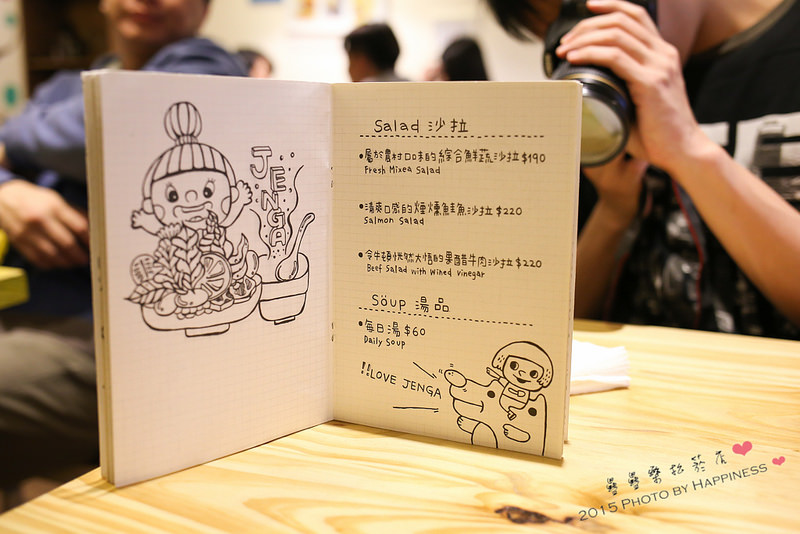 JENGA
Salad 沙拉
•屬於農村口味的綜合鮮蔬沙拉 $190
Fresh Mixed Salad
•清爽口感的煙燻鮭魚沙拉 $220
Salmon Salad
•令牛頓恍然大悟的果醋牛肉沙拉 $220
Beef Salad with Wined Vinegar
Soup 湯品
•每日湯 $60
Daily Soup
!!LOVE JENGA
疊疊樂松菸店
2015 PHOTO BY HAPPINESS